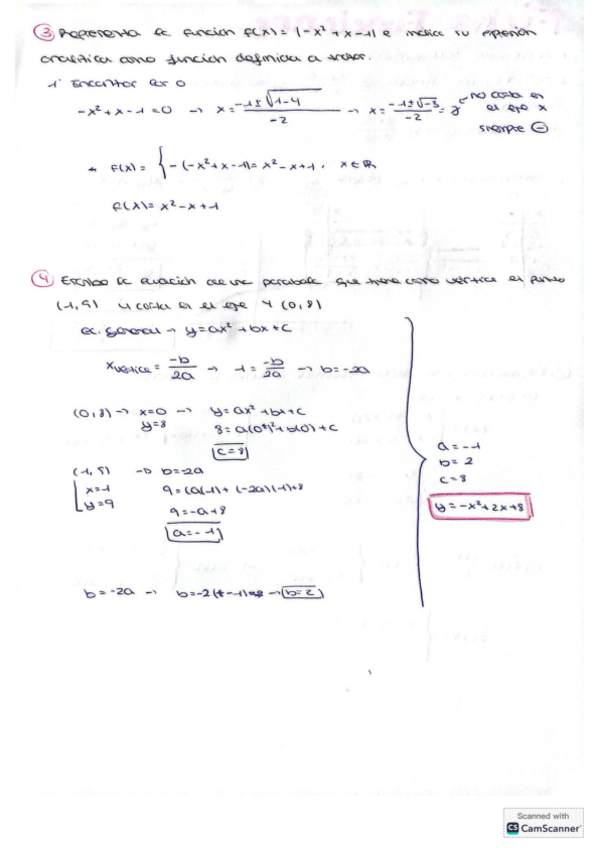 ③ Representa la función f(x) = |-x² + x - 1| e indica su expresión
analítica como función definida a trozos.
1º Encontrar los 0
-x² + x - 1 = 0 → x = -1±√1-4 / -2 → x = -1±√-3 / -2 = ∄ no corta en el eje x siempre ⊖
f(x) = { -(-x²+x-1) = x²-x+1, x∈ℝ
f(x) = x²-x+1
④ Escribe la ecuación de una parábola que tiene como vértice el punto
(-1,9) y corta en el eje Y (0,8)
ec. general → y = ax² + bx + c
x vértice = -b/2a → 1 = -b/2a → b = -2a
(0,8) → x=0 → y = ax² + bx + c
y=8 8 = a(0)² + b(0) + c
c = 8
(-1,9) → b = -2a
x=-1 9 = (a(-1) + (-2a)(-1) + 8
y=9 9 = -a + 8
a = -1
b = -2a → → b = 2
a = -1
b = 2
c = 8
y = -x² + 2x + 8
Scanned with
CS CamScanner